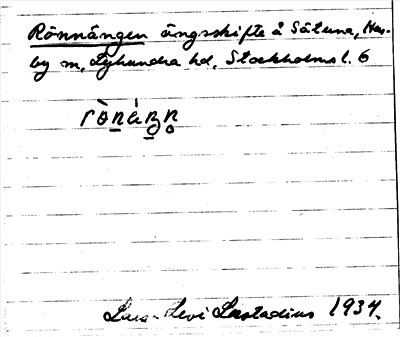 Rönnängen ängsskifte å Såtuna, Hus-
by m, Lyhundra hd, Stockholms l. 6
Lars-Levi Læstadius 1934.